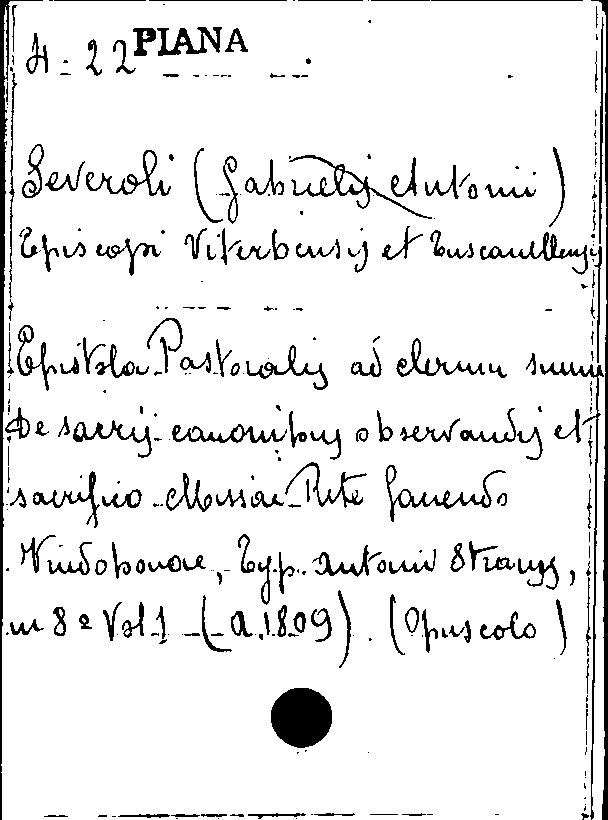 4 - 22 PIANA
Severoli (Gabrielis Antonii)
Episcopi Viterbiensis et Tuscanellensis
Epistola Pastoralis ad clerum suum
De sacris canonibus observandis et
sacrificio Missae Rite faciendo
Vindobonae, Typ. Antonii Strauss,
in 8º Vol 1 (A. 1809). (Opuscolo)